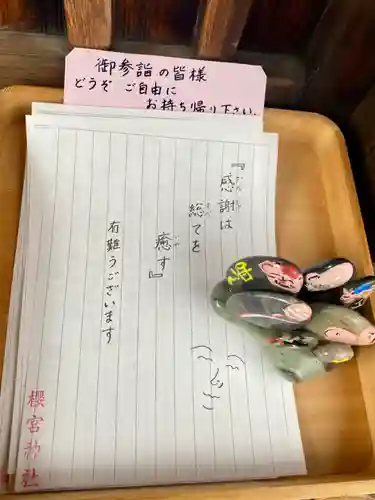 御参詣の皆様
どうぞ ご自由に
お持ち帰り下さい。
『感謝は
総てを
癒す』
有難うございます
櫻宮神社